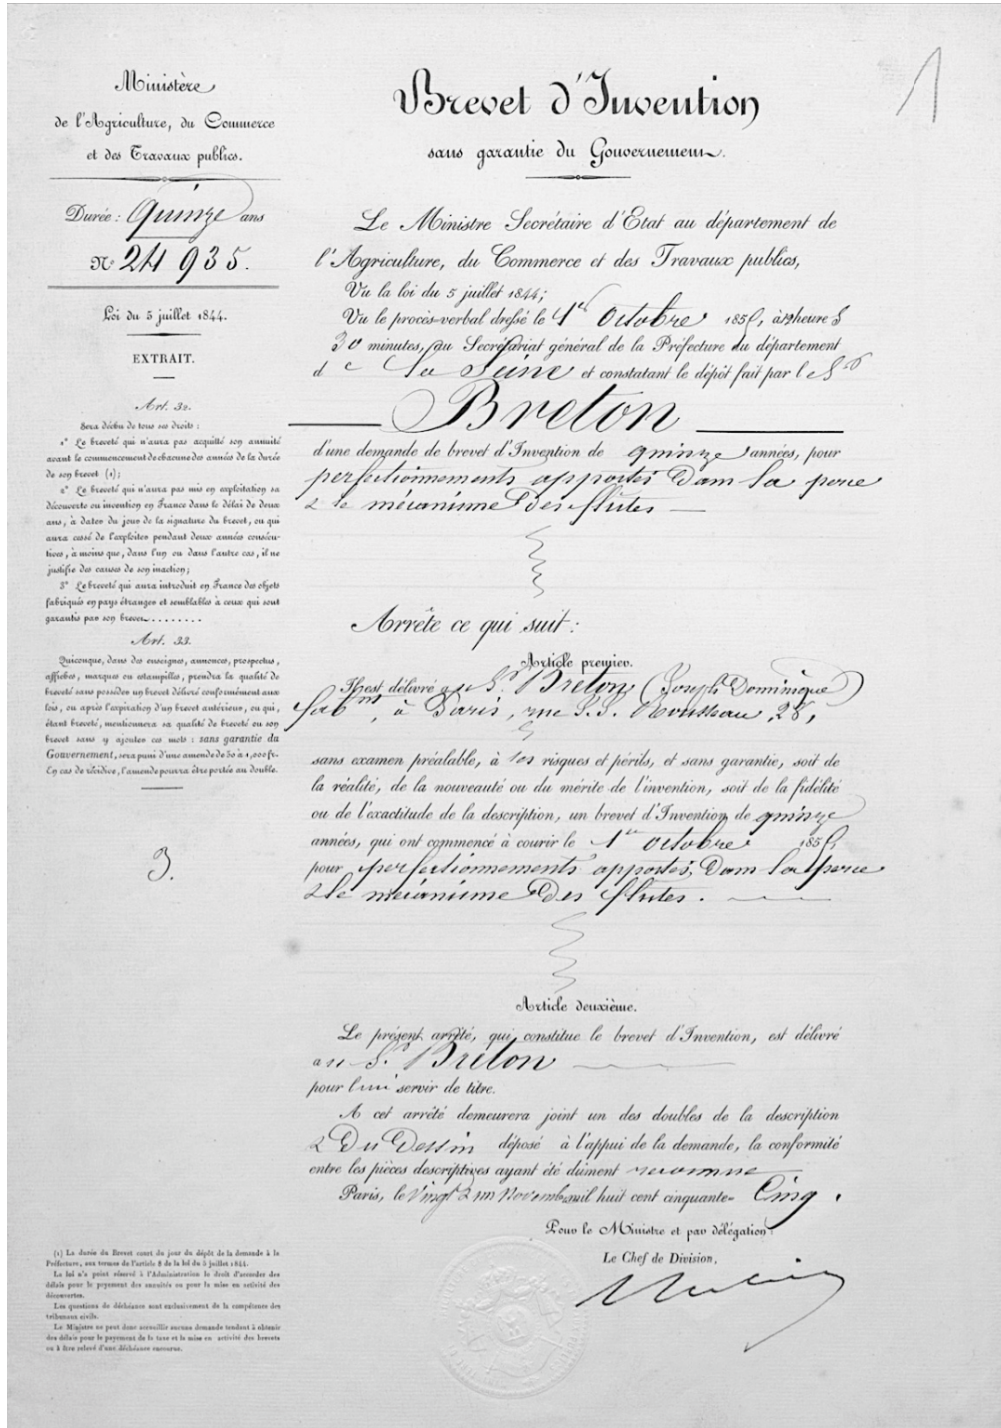 Ministère
de l'Agriculture, du Commerce
et des Travaux publics.
Durée : Quinze ans
N° 24 935.
Loi du 5 juillet 1844.
EXTRAIT.
Art. 32.
Sera déchu de tous ses droits :
1° Le breveté qui n'aura pas acquitté son annuité
avant le commencement de chacune des années de la durée
de son brevet (1);
2° Le breveté qui n'aura pas mis en exploitation sa
découverte ou invention en France dans le délai de deux
ans, à dater du jour de la signature du brevet, ou qui
aura cessé de l'exploiter pendant deux années consécu-
tives, à moins que, dans l'un ou dans l'autre cas, il ne
justifie des causes de son inaction;
3° Le breveté qui aura introduit en France des objets
fabriqués en pays étranger et semblables à ceux qui sont
garantis par son brevet........
Art. 33.
Quiconque, dans des enseignes, annonces, prospectus,
affiches, marques ou estampilles, prendra la qualité de
breveté sans posséder un brevet délivré conformément aux
lois, ou après l'expiration d'un brevet antérieur, ou qui,
étant breveté, mentionnera sa qualité de breveté ou son
brevet sans y ajouter ces mots : sans garantie du
Gouvernement, sera puni d'une amende de 50 à 1,000 fr.
En cas de récidive, l'amende pourra être portée au double.
3.
(1) La durée du Brevet court du jour du dépôt de la demande à la
Préfecture, aux termes de l'article 8 de la loi du 5 juillet 1844.
La loi n'a point réservé à l'Administration le droit d'accorder des
délais pour le payement des annuités ou pour la mise en activité des
découvertes.
Les questions de déchéance sont exclusivement de la compétence des
tribunaux civils.
Le Ministre ne peut donc accueillir aucune demande tendant à obtenir
des délais pour le payement de la taxe et la mise en activité des brevets
ou à être relevé d'une déchéance encourue.
1
Brevet d'Invention
sans garantie du Gouvernement.
Le Ministre Secrétaire d'Etat au département de
l'Agriculture, du Commerce et des Travaux publics,
Vu la loi du 5 juillet 1844;
Vu le procès-verbal dressé le 1er Octobre 1855, à heures
30 minutes, au Secrétariat général de la Préfecture du département
de la Seine et constatant le dépôt fait par le Sr
Breton
d'une demande de brevet d'Invention de quinze années, pour
perfectionnements apportés dans la perce
& le mécanisme des flûtes
Arrête ce qui suit :
Article premier.
Il est délivré au Sr. Breton (Joseph Dominique)
fabnt, à Paris, rue J.J. Rousseau, 28,
sans examen préalable, à ses risques et périls, et sans garantie, soit de
la réalité, de la nouveauté ou du mérite de l'invention, soit de la fidélité
ou de l'exactitude de la description, un brevet d'Invention de quinze
années, qui ont commencé à courir le 1er octobre 1855,
pour perfectionnements apportés, dans la perce
& le mécanisme des flûtes.
Article deuxième.
Le présent arrêté, qui constitue le brevet d'Invention, est délivré
au Sr. Breton
pour lui servir de titre.
A cet arrêté demeurera joint un des doubles de la description
& du Dessin déposé à l'appui de la demande, la conformité
entre les pièces descriptives ayant été dûment reconnue
Paris, le Vingt & un Novembre mil huit cent cinquante- Cinq.
Pour le Ministre et par délégation :
Le Chef de Division,